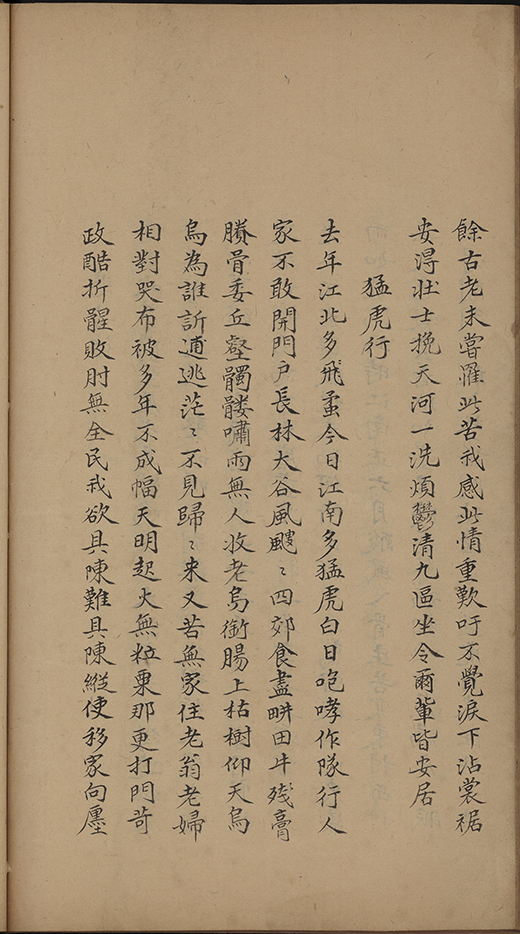 餘古老未嘗罹此苦我感此情重歎吁不覺淚下沾裳裾
安得壯士挽天河一洗煩鬱清九區坐令爾輩皆安居
猛虎行
去年江北多飛蝗今日江南多猛虎白日咆哮作隊行人
家不敢開門戶長林大谷風颼〻四郊食盡畊田牛殘膏
賸骨委丘壑髑髏嘯雨無人收老烏銜腸上枯樹仰天烏
烏為誰訴逋逃茫〻不見歸〻来又苦無家住老翁老婦
相對哭布被多年不成幅天明起火無粒粟那更打門苛
政酷折髖敗肘無全民我欲具陳難具陳縱使移家向廛